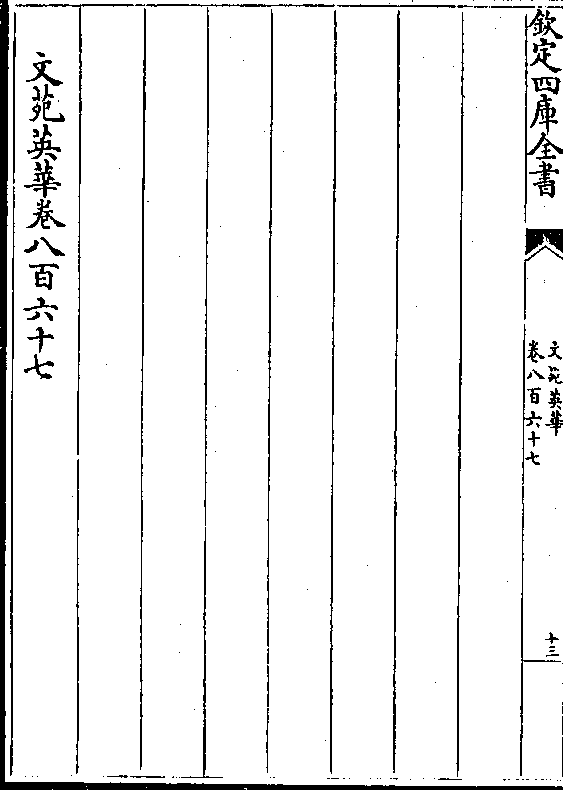 欽定四庫全書
文苑英華
卷八百六十七
十三
文苑英華卷八百六十七